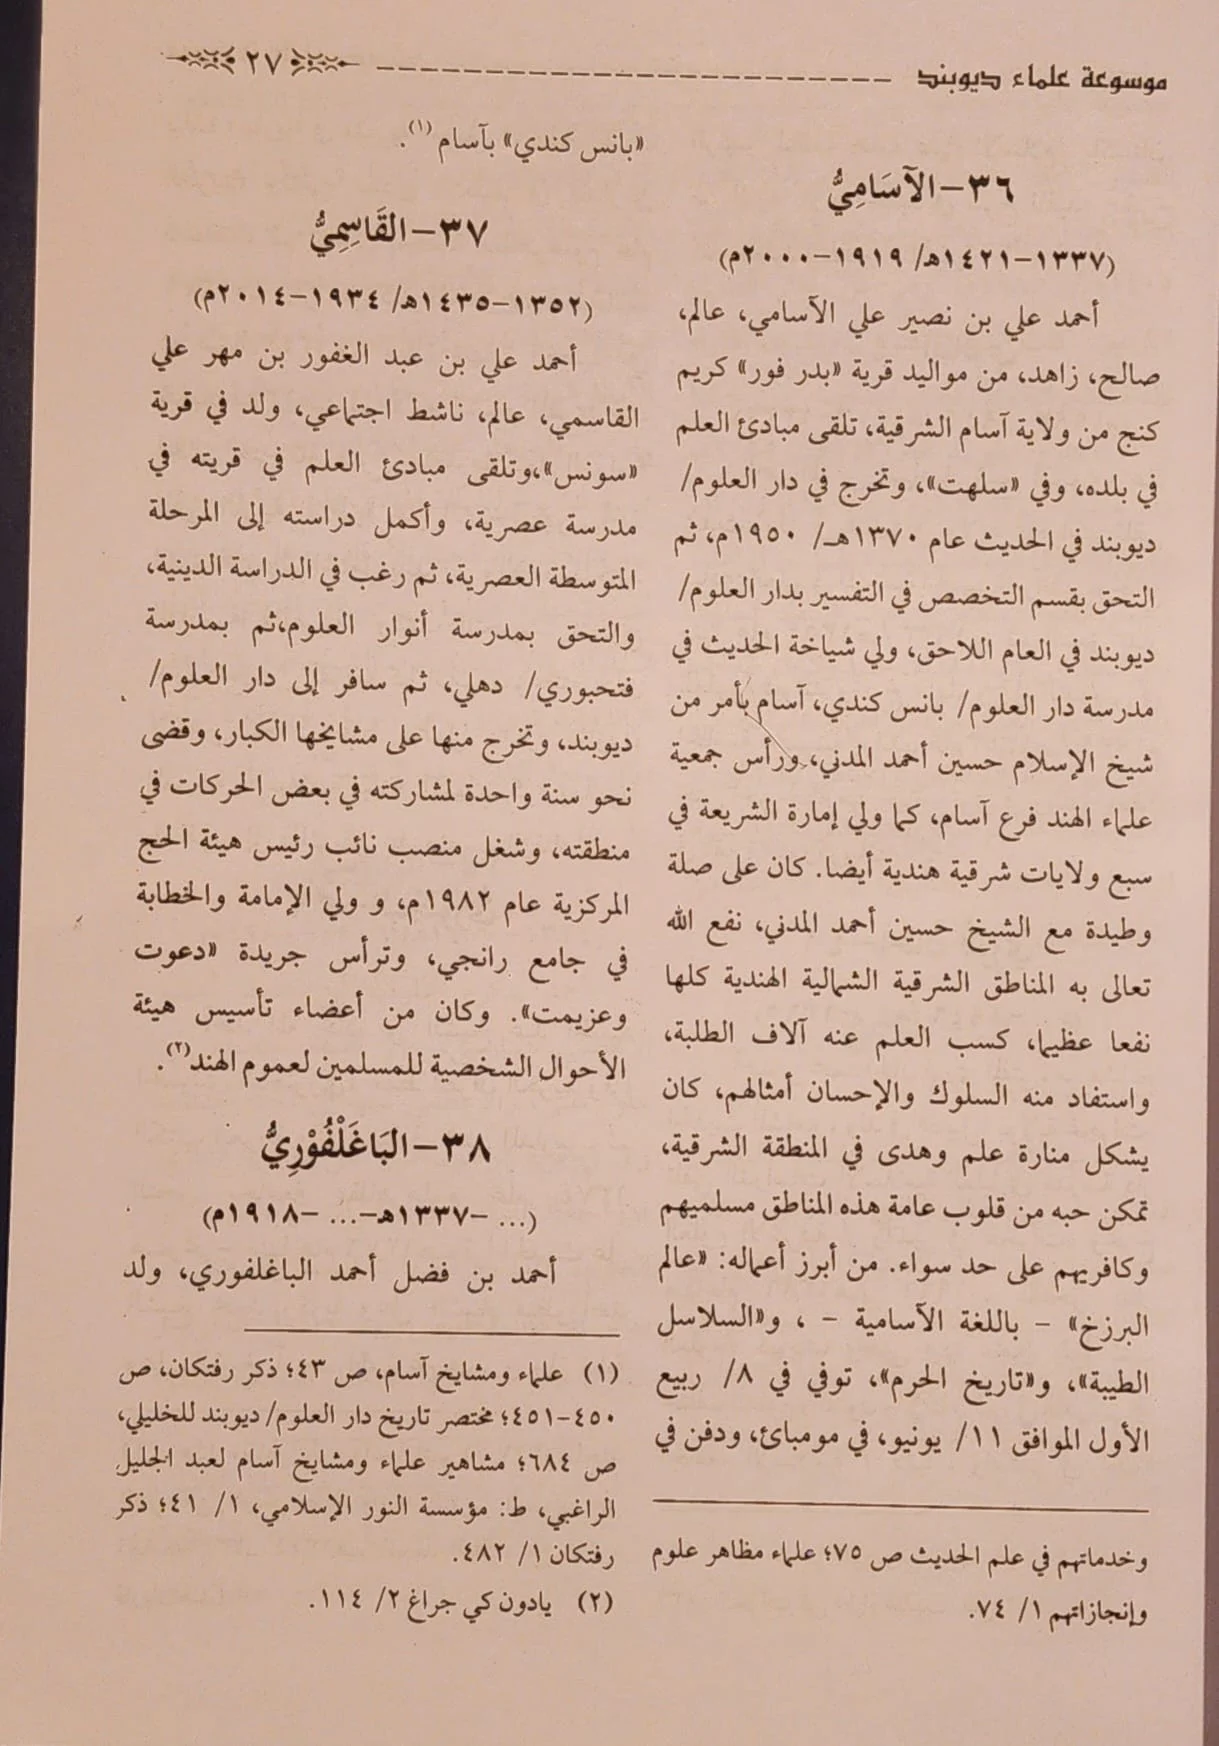 موسوعة علماء ديوبند
٢٧
٣٦-الآسَامِيُّ
(١٣٣٧-١٤٢١ھ/ ١٩١٩-٢٠٠٠م)
أحمد علي بن نصير علي الآسامي، عالم،
صالح، زاهد، من مواليد قرية «بدر فور» كريم
كنج من ولاية آسام الشرقية، تلقى مبادئ العلم
في بلده، وفي «سلهت»، وتخرج في دار العلوم/
ديوبند في الحديث عام ١٣٧٠هـ/ ١٩٥٠م، ثم
التحق بقسم التخصص في التفسير بدار العلوم/
ديوبند في العام اللاحق، ولي شياخة الحديث في
مدرسة دار العلوم/ بانس كندي، آسام بأمر من
شيخ الإسلام حسين أحمد المدني، ورأس جمعية
علماء الهند فرع آسام، كما ولي إمارة الشريعة في
سبع ولايات شرقية هندية أيضا. كان على صلة
وطيدة مع الشيخ حسين أحمد المدني، نفع الله
تعالى به المناطق الشرقية الشمالية الهندية كلها
نفعا عظيما، كسب العلم عنه آلاف الطلبة،
واستفاد منه السلوك والإحسان أمثالهم، كان
يشكل منارة علم وهدى في المنطقة الشرقية،
تمكن حبه من قلوب عامة هذه المناطق مسلميهم
وكافريهم على حد سواء. من أبرز أعماله: «عالم
البرزخ» - باللغة الآسامية - ، و«السلاسل
الطيبة»، و«تاريخ الحرم»، توفي في ٨/ ربيع
الأول الموافق ١١/ يونيو، في مومبائ، ودفن في
وخدماتهم في علم الحديث ص ٧٥؛ علماء مظاهر علوم
وإنجازاتهم ١/ ٧٤.
«بانس كندي» بآسام (١).
٣٧-القَاسِمِيُّ
(١٣٥٢-١٤٣٥ھ/ ١٩٣٤-٢٠١٤م)
أحمد علي بن عبد الغفور بن مهر علي
القاسمي، عالم، ناشط اجتماعي، ولد في قرية
«سونس»،وتلقى مبادئ العلم في قريته في
مدرسة عصرية، وأكمل دراسته إلى المرحلة
المتوسطة العصرية، ثم رغب في الدراسة الدينية،
والتحق بمدرسة أنوار العلوم،ثم بمدرسة
فتحبوري/ دهلي، ثم سافر إلى دار العلوم/
ديوبند، وتخرج منها على مشايخها الكبار، وقضى
نحو سنة واحدة لمشاركته في بعض الحركات في
منطقته، وشغل منصب نائب رئيس هيئة الحج
المركزية عام ١٩٨٢م، و ولي الإمامة والخطابة
في جامع رانجي، وترأس جريدة «دعوت
وعزيمت». وكان من أعضاء تأسيس هيئة
الأحوال الشخصية للمسلمين لعموم الهند(٢).
٣٨-البَاغَلْفُوْرِيُّ
(... -١٣٣٧هـ-... -١٩١٨م)
أحمد بن فضل أحمد الباغلفوري، ولد
(١) علماء ومشايخ آسام، ص ٤٣؛ ذكر رفتكان، ص
٤٥٠-٤٥١؛ مختصر تاريخ دار العلوم/ ديوبند للخليلي،
ص ٦٨٤؛ مشاهير علماء ومشايخ آسام لعبد الجليل
الراغبي، ط: مؤسسة النور الإسلامي، ١/ ٤١؛ ذكر
رفتكان ١/ ٤٨٢.
(٢) يادون كي جراغ ٢/ ١١٤.